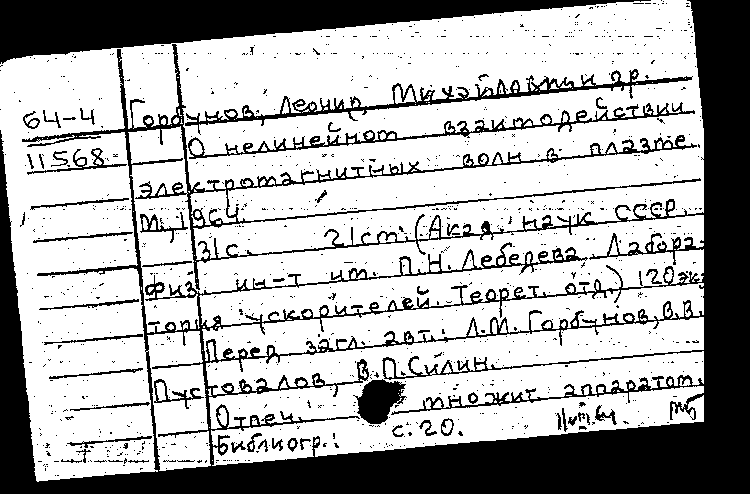 64-4 Горбунов, Леонид Михайлович и др.
11568 О нелинейном взаимодействии
электромагнитных волн в плазме.
М., 1964.
31с. 21cm. (Акад. наук СССР.
Физ. ин-т им. П.Н. Лебедева. Лабора-
тория ускорителей. Теорет. отд.) 120 экз
Перед загл. авт.: Л.М. Горбунов, В.В.
Пустовалов, В.П. Силин.
Отпеч. множит. аппаратом.
Библиогр.: с. 20.